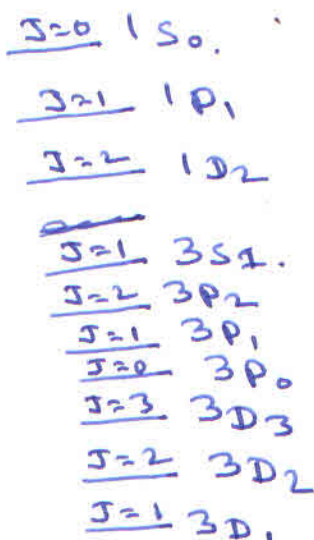 J=0 1S0.
J=1 1P1
J=2 1D2
J=1 3S1.
J=2 3P2
J=1 3P1
J=0 3P0
J=3 3D3
J=2 3D2
J=1 3D1